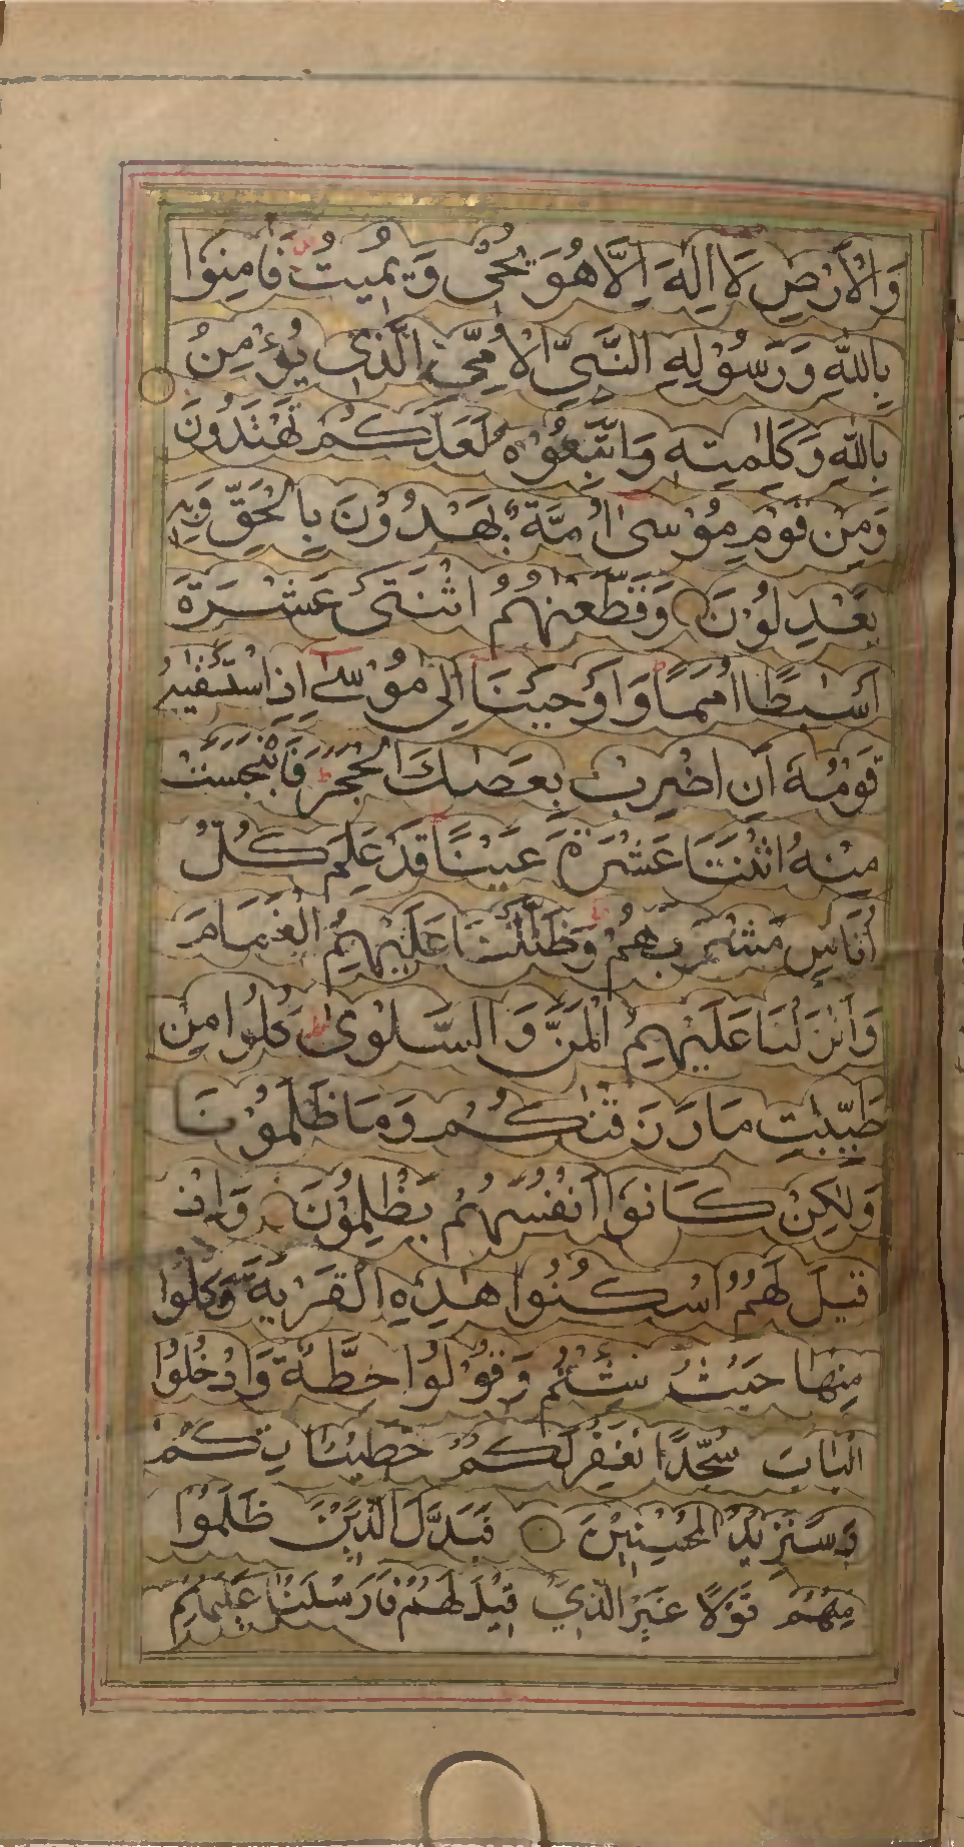 وَالْأَرْضِ لَا إِلَهَ إِلَّا هُوَ يُحْيِ وَيُمِيتُ فَاٰمِنُوا
بِاللّٰهِ وَرَسُوْلِهِ النَّبِيِّ الْاُمِّيِّ الَّذِي يُؤْمِنُ
بِاللّٰهِ وَكَلِمٰتِهٖ وَاتَّبِعُوْهُ لَعَلَّكُمْ تَهْتَدُونَ
وَمِنْ قَوْمِ مُوْسٰى اُمَّةٌ يَّهْدُوْنَ بِالْحَقِّ وَبِهٖ
يَعْدِلُوْنَ وَقَطَّعْنٰهُمُ اثْنَتَىْ عَشْرَةَ
اَسْبَاطًا اُمَمًا وَاَوْحَيْنَا اِلٰى مُوْسٰى اِذِ اسْتَسْقٰىهُ
قَوْمُهٗ اَنِ اضْرِبْ بِعَصَاكَ الْحَجَرَ فَانْبَجَسَتْ
مِنْهُ اثْنَتَا عَشْرَةَ عَيْنًا قَدْ عَلِمَ كُلُّ
اُنَاسٍ مَّشْرَبَهُمْ وَظَلَّلْنَا عَلَيْهِمُ الْغَمَامَ
وَاَنْزَلْنَا عَلَيْهِمُ الْمَنَّ وَالسَّلْوٰى كُلُوا مِنْ
طَيِّبٰتِ مَا رَزَقْنٰكُمْ وَمَا ظَلَمُوْنَا
وَلٰكِنْ كَانُوْا اَنْفُسَهُمْ يَظْلِمُوْنَ وَاِذْ
قِيْلَ لَهُمُ اسْكُنُوْا هٰذِهِ الْقَرْيَةَ وَكُلُوْا
مِنْهَا حَيْثُ شِئْتُمْ وَقُوْلُوْا حِطَّةٌ وَادْخُلُوا
الْبَابَ سُجَّدًا نَغْفِرْ لَكُمْ خَطِيْئَاتِكُمْ
سَنَزِيْدُ الْمُحْسِنِيْنَ فَبَدَّلَ الَّذِيْنَ ظَلَمُوْا
مِنْهُمْ قَوْلًا غَيْرَ الَّذِيْ قِيْلَ لَهُمْ فَاَرْسَلْنَا عَلَيْهِمْ